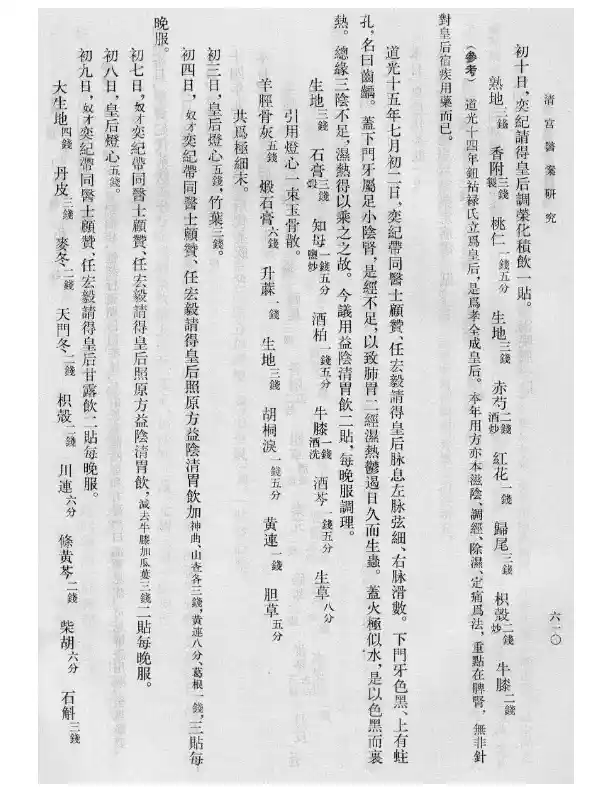 清宮醫案研究
六二〇
初十日，奕紀請得皇后調榮化積飲一貼。
熟地三錢　香附三錢製　桃仁一錢五分　生地三錢　赤芍二錢酒炒　紅花一錢　歸尾三錢　枳殼二錢炒　牛膝二錢
（參考）　道光十四年鈕祜祿氏立爲皇后，是爲孝全成皇后。本年用方亦本滋陰、調經、除濕、定痛爲法，重點在脾腎，無非針
對皇后宿疾用藥而已。
道光十五年七月初二日，奕紀帶同醫士顧贊、任宏毅請得皇后脉息左脉弦細、右脉滑數。下門牙色黑，上有蛀
孔，名曰齒齲。蓋下門牙屬足小陰腎，是經不足，以致肺胃二經濕熱鬱遏日久而生蟲。蓋火極似水，是以色黑而裏
熱。總緣三陰不足，濕熱得以乘之之故。今議用益陰清胃飲二貼，每晚服調理。
生地三錢　石膏三錢煅　知母一錢五分鹽炒　酒柏一錢五分　牛膝一錢酒洗　酒芩一錢五分　生草八分
引用燈心一束玉骨散。
羊脛骨灰五錢　煅石膏六錢　升蔴一錢　生地三錢　胡桐淚一錢五分　黄連一錢　胆草五分
共爲極細末。
初三日，皇后燈心五錢，竹葉三錢。
初四日，奴才奕紀帶同醫士顧贊、任宏毅請得皇后照原方益陰清胃飲加神曲、山查各三錢，黄連八分、葛根一錢，三貼每
晚服。
初七日，奴才奕紀帶同醫士顧贊、任宏毅請得皇后照原方益陰清胃飲，減去牛膝加瓜蔞三錢二貼每晚服。
初八日，皇后燈心五錢。
初九日，奴才奕紀帶同醫士顧贊、任宏毅請得皇后甘露飲二貼每晚服。
大生地四錢　丹皮三錢　麥冬二錢　天門冬二錢　枳殼二錢　川連六分　條黄芩二錢　柴胡六分　石斛三錢